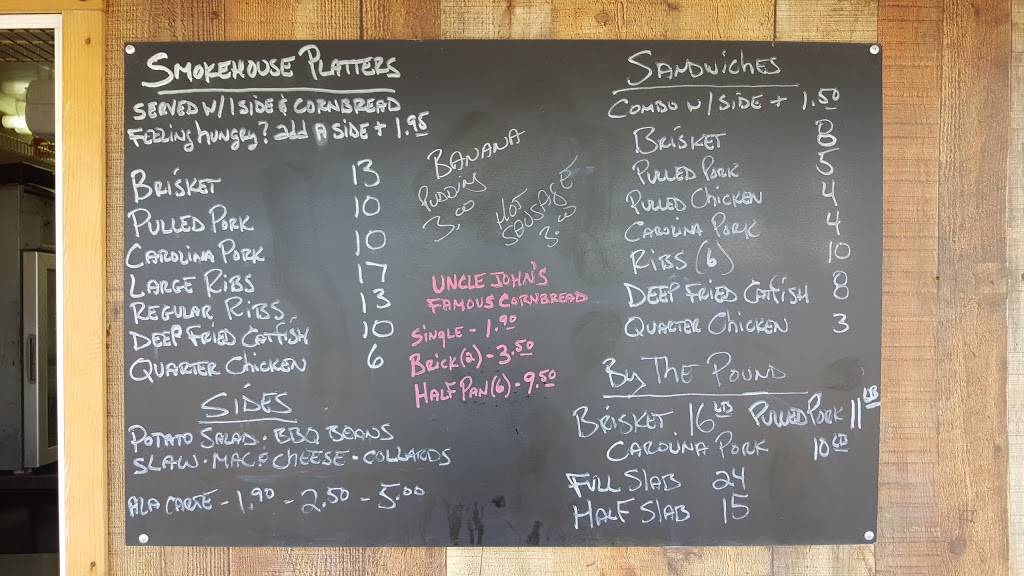 SMOKEHOUSE PLATTERS
SERVED W/ 1 SIDE & CORNBREAD
FEELING hungry? add A SIDE + 1.95
BRISKET 13
PULLED PORK 10
CAROLINA PORK 10
LARGE RIBS 17
REGULAR RIBS 13
DEEP FRIED CATFISH 10
QUARTER CHICKEN 6
SIDES
POTATO SALAD · BBQ BEANS
SLAW · MAC & CHEESE · COLLARDS
ALA CARTE - 1.90 - 2.50 - 5.00
BANANA
PUDDING
3.00
HOT
SAUSAGE
3.00
UNCLE JOHN'S
FAMOUS CORNBREAD
SINGLE - 1.90
BRICK (2) - 3.50
HALF PAN (6) - 9.50
SANDWICHES
COMBO W/ SIDE + 1.50
BRISKET 8
PULLED PORK 5
PULLED CHICKEN 4
CAROLINA PORK 4
RIBS (6) 10
DEEP FRIED CATFISH 8
QUARTER CHICKEN 3
By THE POUND
BRISKET 16 LB PULLED PORK 11 LB
CAROLINA PORK 10 LB
FULL SLAB 24
HALF SLAB 15